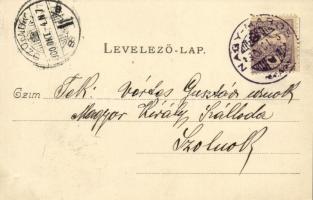 LEVELEZŐ-LAP.
Czim Tek: Vértes Gusztáv urnok
Magyar Király Szálloda
Szolnok